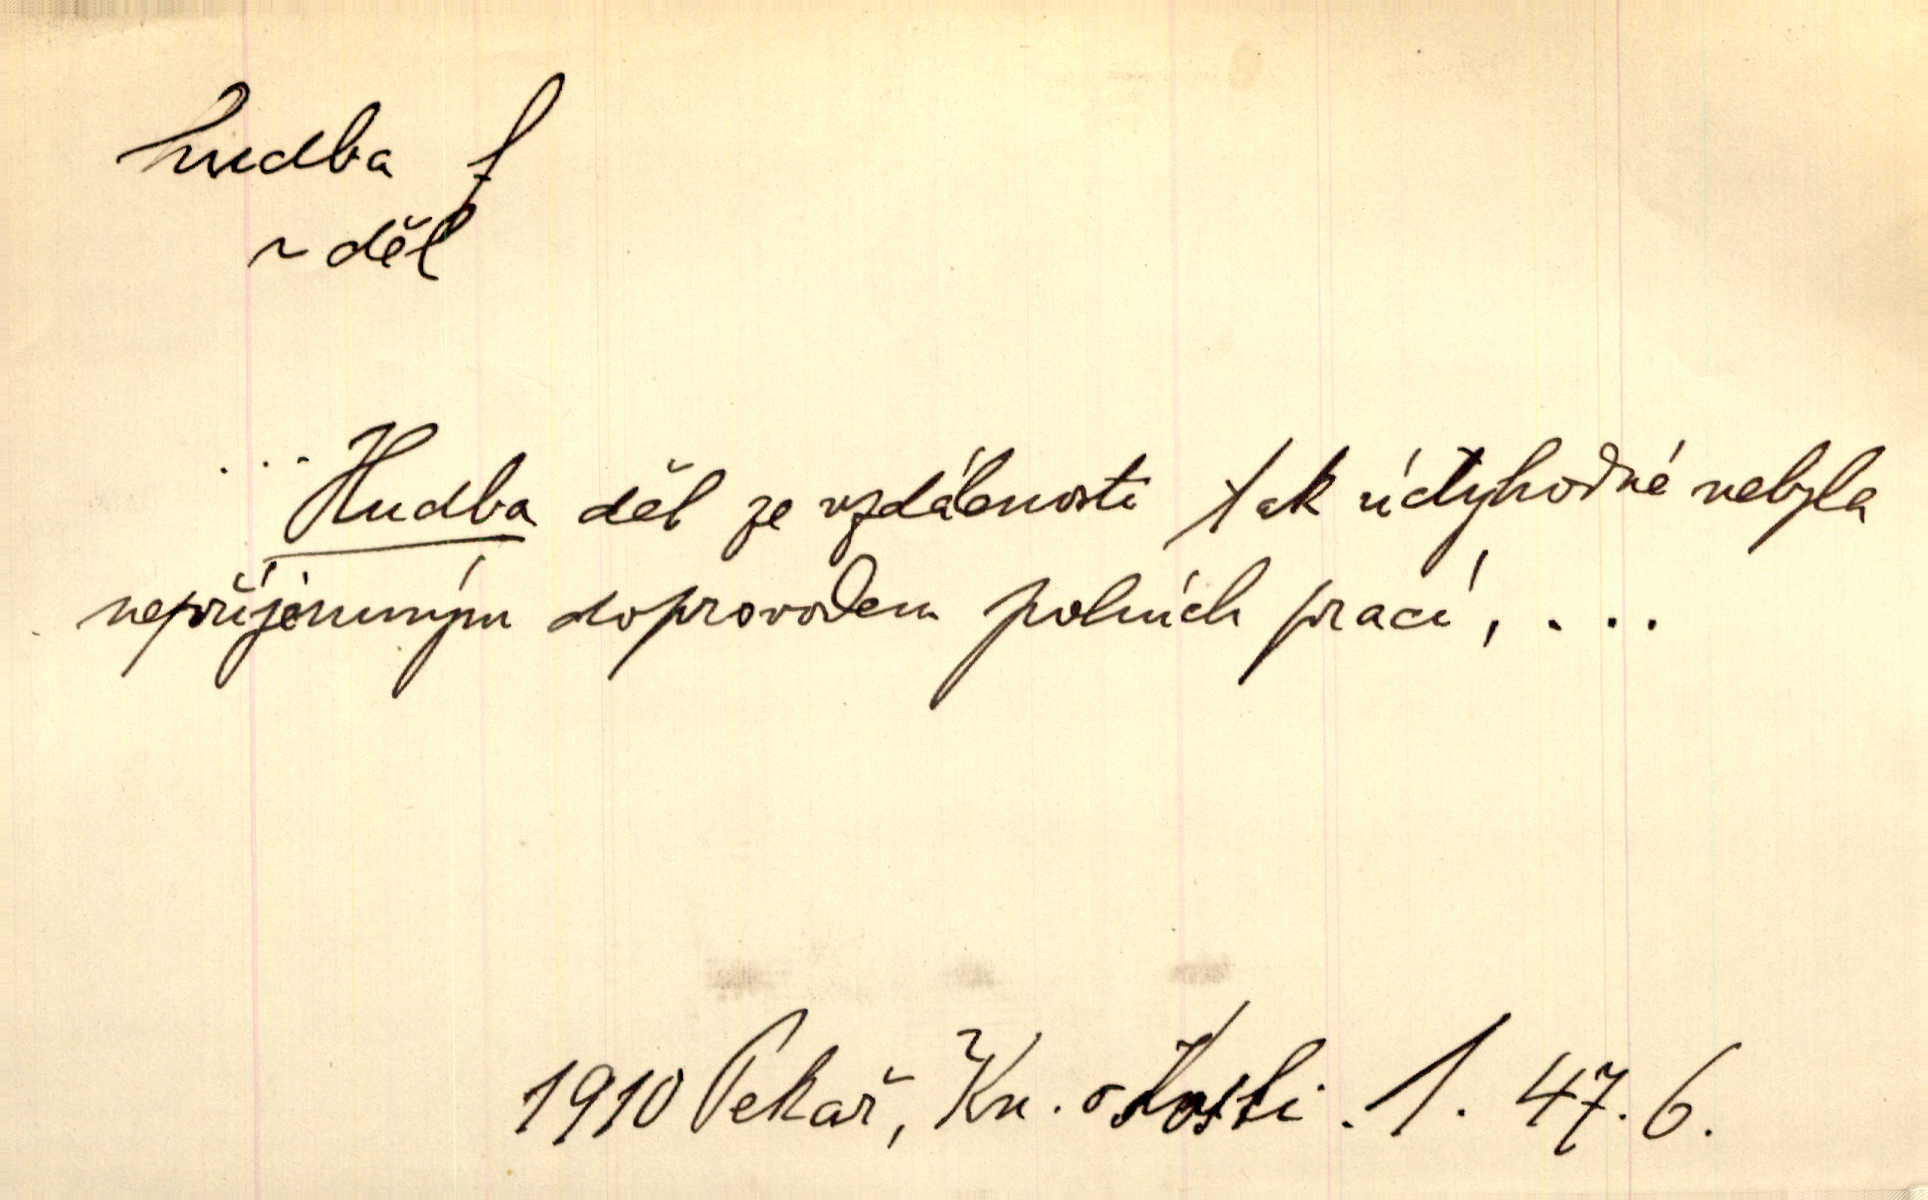 hudba f
~ děl
... Hudba děl ze vzdálenosti tak úctyhodné nebyla
nepříjemným doprovodem polních prací, ...
1910 Pekař, Kn. o Kosti. 1. 47. 6.